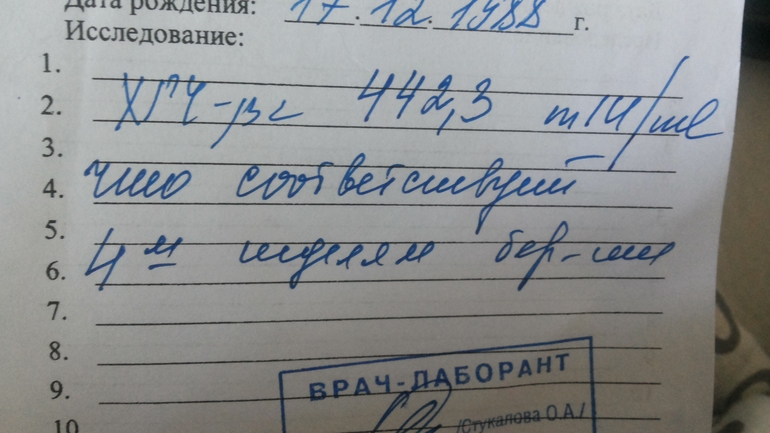 Дата рождения: 17.12.1988 г.
Исследование:
1.
2. ХГЧ-βс 442,3 mIU/ml
3.
4. что соответствует
5.
6. 4м неделям бер-ти
7.
8.
9. ВРАЧ-ЛАБОРАНТ
10. /Стукалова О.А/